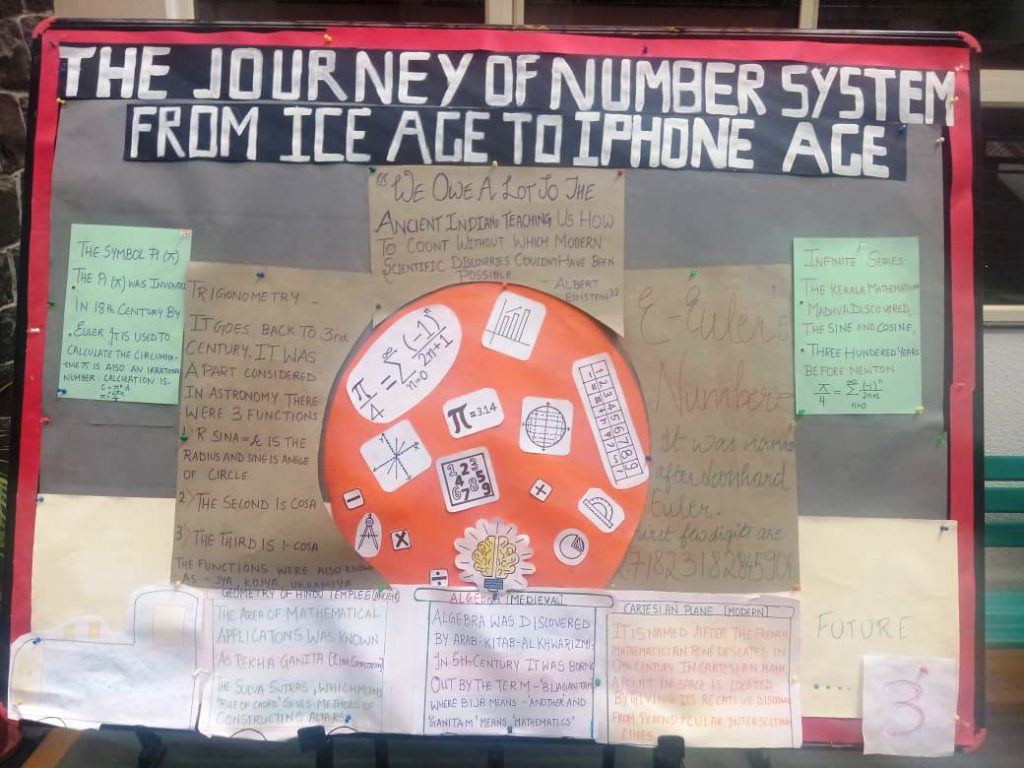 THE JOURNEY OF NUMBER SYSTEM
FROM ICE AGE TO IPHONE AGE
"WE OWE A LOT TO THE
ANCIENT INDIANS TEACHING US HOW
TO COUNT WITHOUT WHICH MODERN
SCIENTIFIC DISCOVERIES COULDN'T HAVE BEEN
POSSIBLE
- ALBERT
EINSTEIN"
THE SYMBOL PI (π)
THE PI (π) WAS INVENTED
IN 18th CENTURY BY
EULER IT IS USED TO
CALCULATE THE CIRCUMFER-
ENCE π IS ALSO AN IRRATIONAL
NUMBER. CALCULATION IS-
TRIGONOMETRY -
IT GOES BACK TO 3rd
CENTURY. IT WAS
A PART CONSIDERED
IN ASTRONOMY. THERE
WERE 3 FUNCTIONS
1) R SINA = h IS THE
RADIUS AND SINE IS ANGLE
OF CIRCLE
2) THE SECOND IS COSA
3) THE THIRD IS 1-COSA
THE FUNCTIONS WERE ALSO KNOWN
AS - JYA, KOJYA, UKRAMJYA
π/4 = ∞∑n=0 (-1)ⁿ/2n+1
π=3.14
1 2 3 4 5 6 7 8 9
1 2 3
4 5
6 7 8 9
E-Euler's
Number=
It was name
after Leonhard
Euler.
First few digits are
2.71823182845904
INFINITE SERIES
THE KERALA MATHEMATI
MADHVA DISCOVERED,
THE SINE AND COSINE,
THREE HUNDRED YEARS
BEFORE NEWTON
π/4 = ∞∑n=0 (-1)ⁿ/2n+1
GEOMETRY OF HINDU TEMPLES [ANCIENT]
THE AREA OF MATHEMATICAL
APPLICATIONS WAS KNOWN
AS REKHA GANITA [LINE COMPUTATION]
THE SULVA SUTRAS, WHICH MEANS
'RULE OF CHORD' GIVES METHODS OF
CONSTRUCTING ALTARS
ALGEBRA [MEDIEVAL]
ALGEBRA WAS DISCOVERED
BY ARAB-KITAB-AL KHWARIZMI
IN 5th CENTURY IT WAS BORNE
OUT BY THE TERM - 'BIJAGANITAM
WHERE BIJA MEANS - 'ANOTHER' AND
'GANITAM' MEANS 'MATHEMATICS'
CARTESIAN PLANE [MODERN]
IT IS NAMED AFTER THE FRENCH
MATHEMATICIAN RENÉ DESCATES IN
17th CENTURY. IN CARTESIAN PLANE
A POINT IN SPACE IS LOCATED
BY GIVING ITS RELATIVE DISTANCE
FROM PERPENDICULAR INTERSECTING
LINES
FUTURE
3